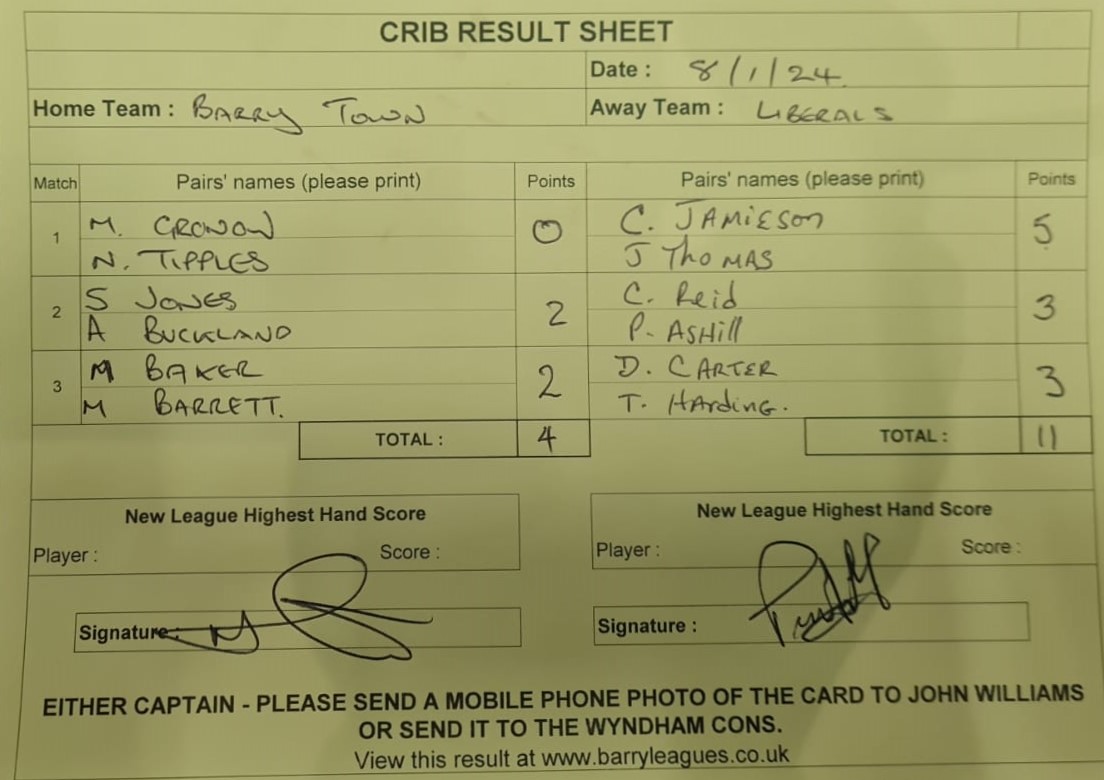 CRIB RESULT SHEET
Date : 8/1/24
Home Team : BARRY TOWN Away Team : LIBERALS
Match Pairs' names (please print) Points Pairs' names (please print) Points
M. GRONOW C. JAMIESON
1 0 5
N. TIPPLES J THOMAS
S JONES C. Reid
2 2 3
A BUCKLAND P. ASHill
M BAKER D. CARTER
3 2 3
M BARRETT. T. HArdiNG.
TOTAL : 4 TOTAL : 11
New League Highest Hand Score New League Highest Hand Score
Player : Score : Player : Score :
Signature : Signature :
EITHER CAPTAIN - PLEASE SEND A MOBILE PHONE PHOTO OF THE CARD TO JOHN WILLIAMS
OR SEND IT TO THE WYNDHAM CONS.
View this result at www.barryleagues.co.uk